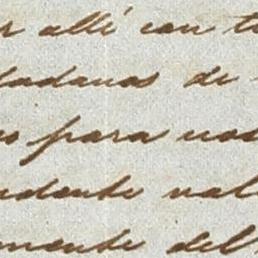 r allí con t
dadanos de
o para nos
ndente val
mente del